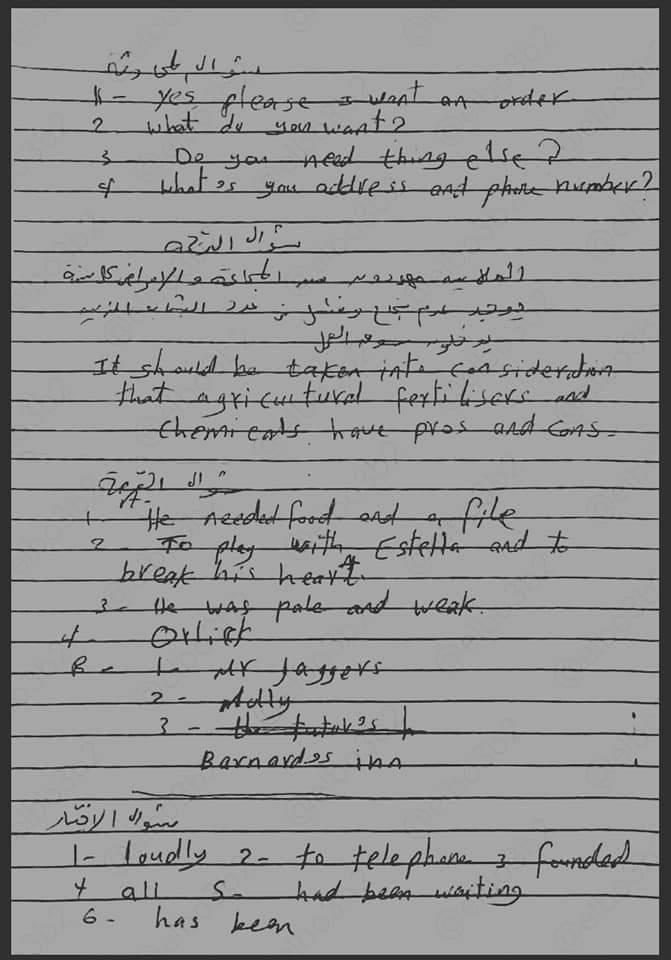 سؤال المحادثة
1- yes, please I want an order
2 what do you want?
3 Do you need thing else?
4 what's you address and phone number?
سؤال الترجمة
الملايين مهددون من المجاعة والامراض
يوجد عدم نجاح وفشل من عدد الشباب الذين
يدخلون سوق العمل
It should be taken into consideration
that agricultural fertilisers and
chemicals have pros and cons.
سؤال القصة
A-
1- He needed food and a file
2- To play with Estella and to
break his heart.
3- He was pale and weak.
4- Orlick
B- 1- Mr Jaggers
2- Molly
3-
Barnard's inn
سؤال الاختيار
1- loudly 2- to telephone 3 founded
4 all 5- had been waiting
6- has been